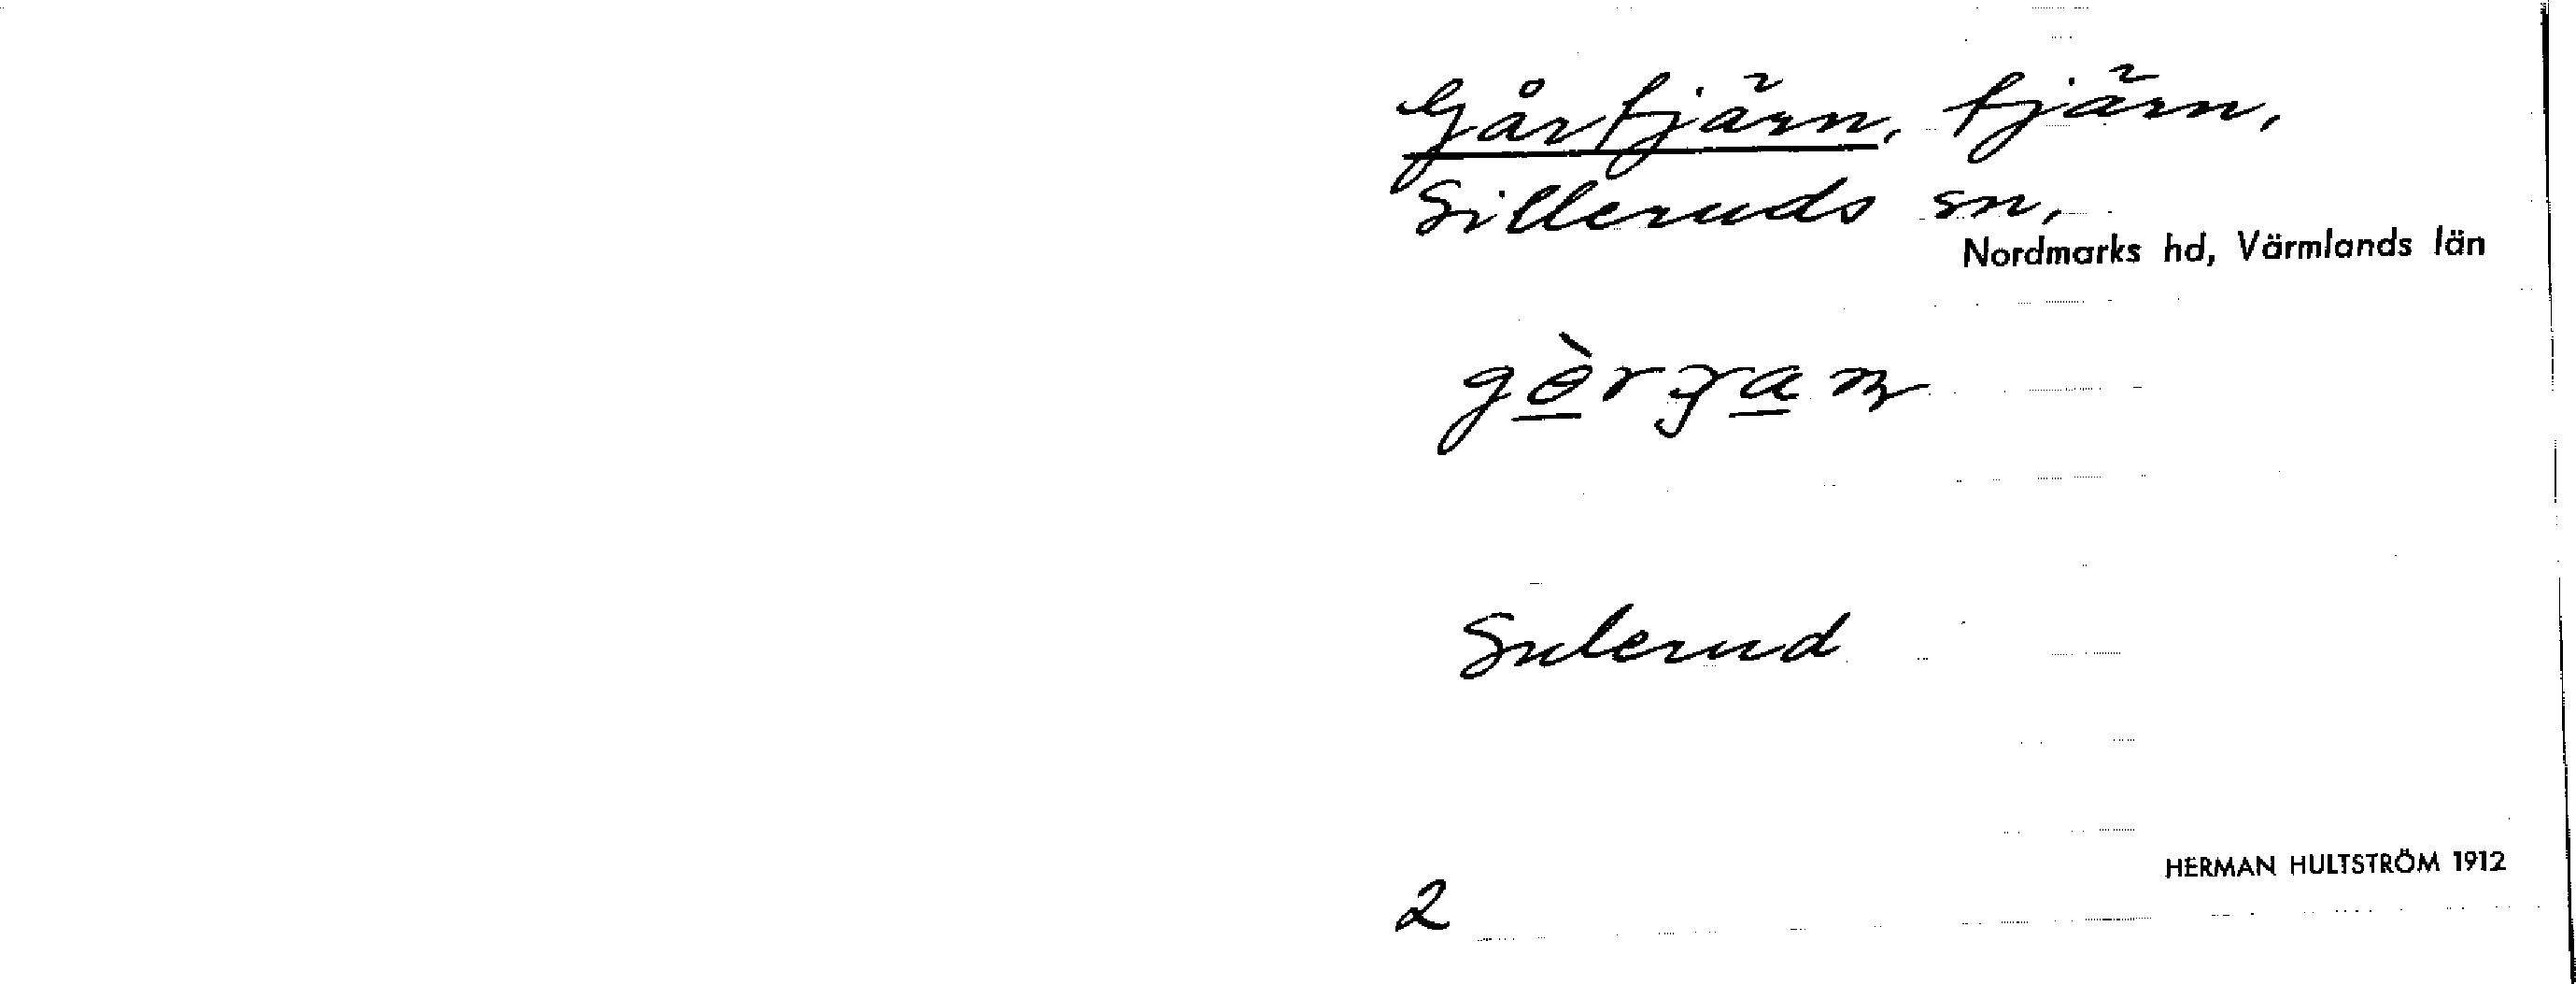 Gårtjärn, tjärn,
Silleruds sn,
Nordmarks hd, Värmlands län
Sulerud
HERMAN HULTSTRÖM 1912
2